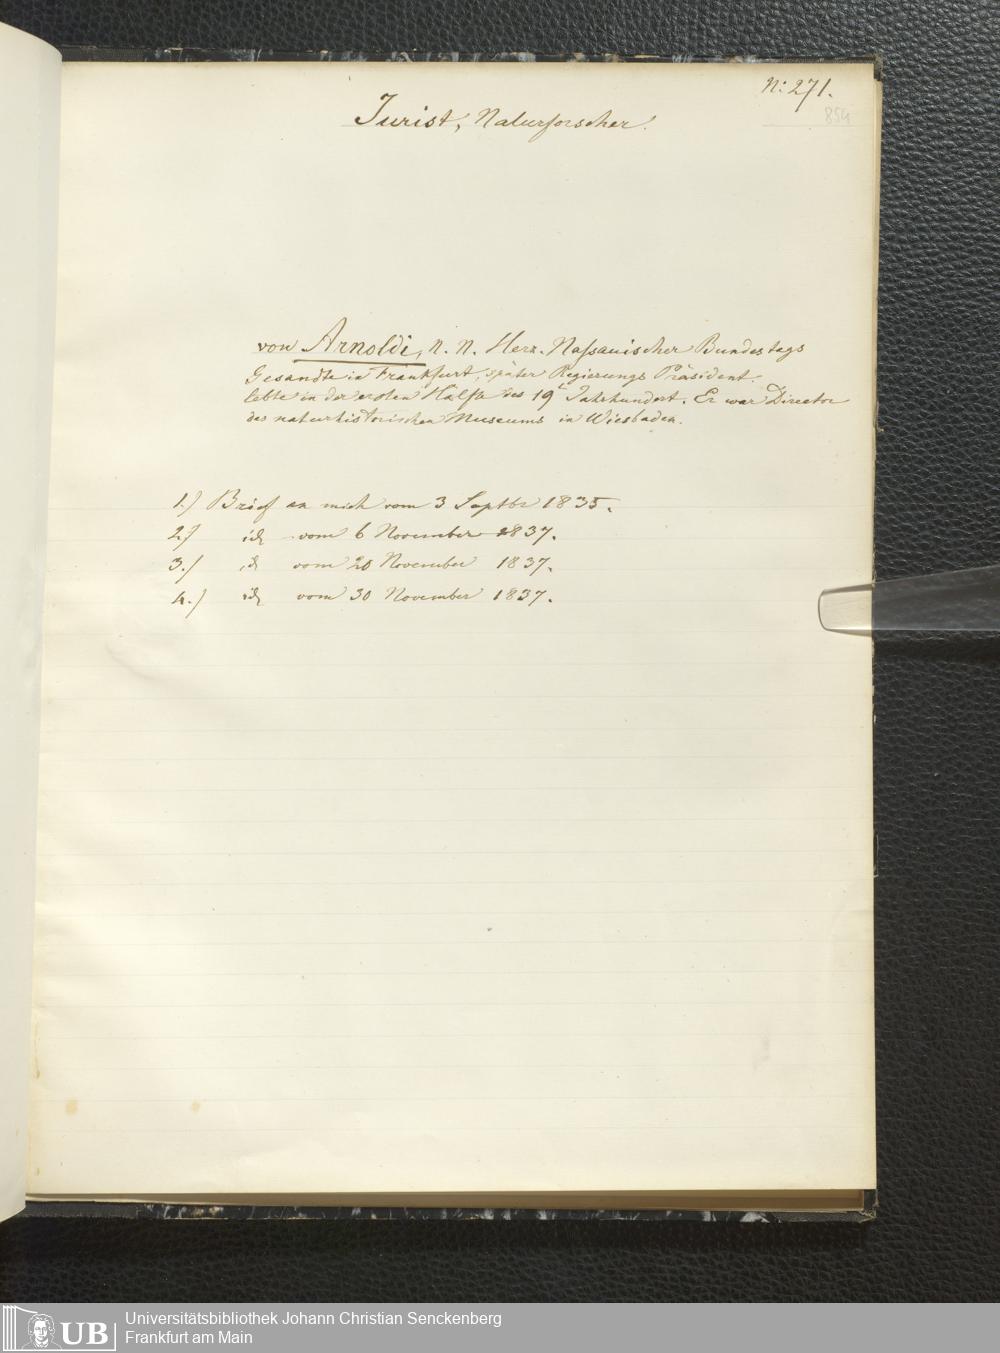 N: 271.
854
Jurist, Naturforscher.
von Arnoldi, N. N. Herz. Naßauischer Bundestags
Gesandte in Frankfurt, später Regierungs Präsident.
lebte in der ersten Hälfte des 19t Jahrhundert. Er war Director
des naturhistorischen Museums in Wiesbaden.
1.) Brief an mich vom 3 Septbr 1835.
2.) id vom 6 November 1837.
3.) id vom 20 November 1837.
4.) id vom 30 November 1837.
Universitätsbibliothek Johann Christian Senckenberg
UB Frankfurt am Main